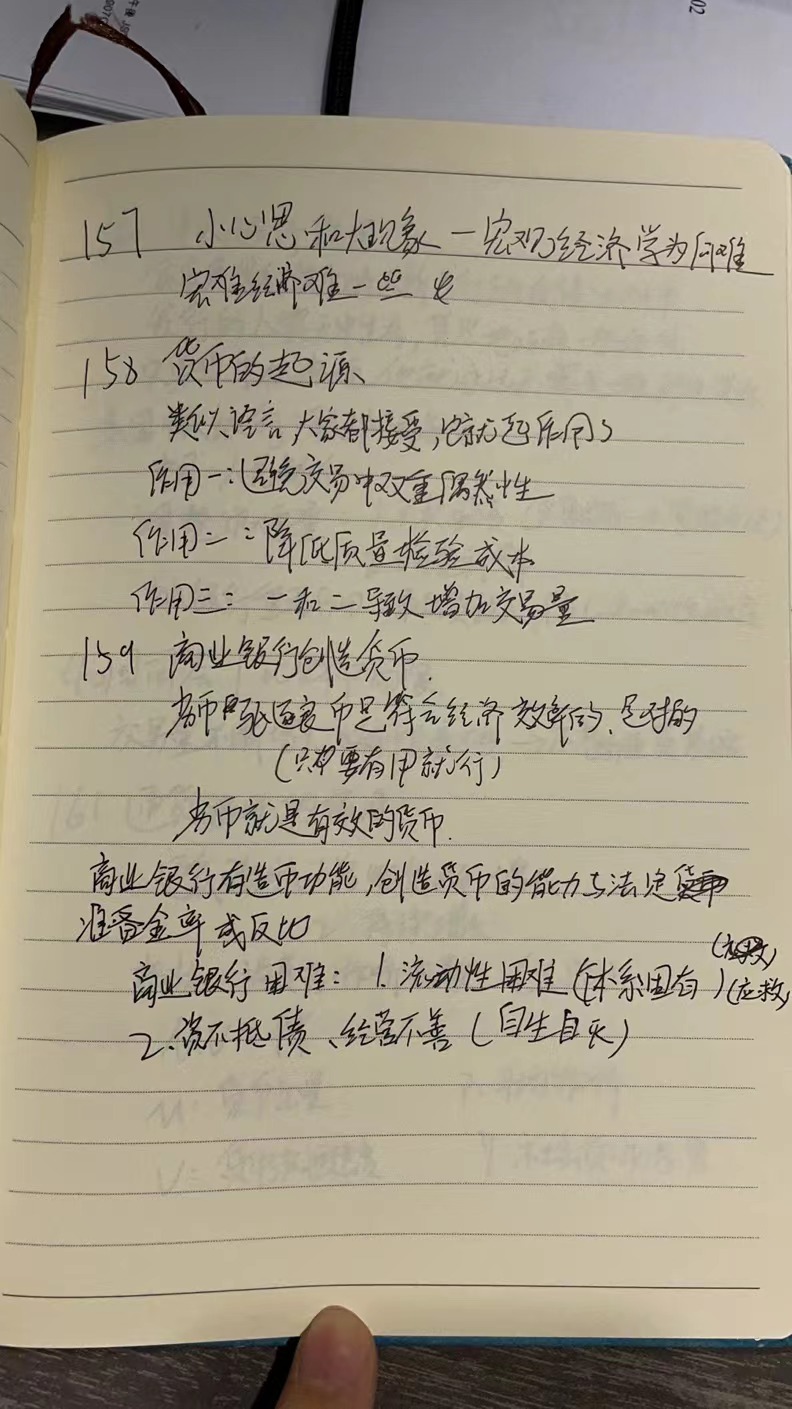 02
157 小心思和大现象一宏观经济学为何难
宏难经济难一些
158 货币的起源、
类似语言大家都接受,它就起作用了
作用一:避免交易中双重偶然性
作用二:降低质量检验成本
作用三:一和二导致增加交易量
159 商业银行创造货币.
劣币驱逐良币是符合经济效率的、是对的
(只要有用就行)
劣币就是有效的货币.
商业银行有造币功能,创造货币的能力与法定
准备金率成反比
商业银行困难:1.流动性困难(体系固有)(应救)
2.资不抵债、经营不善(自生自灭)